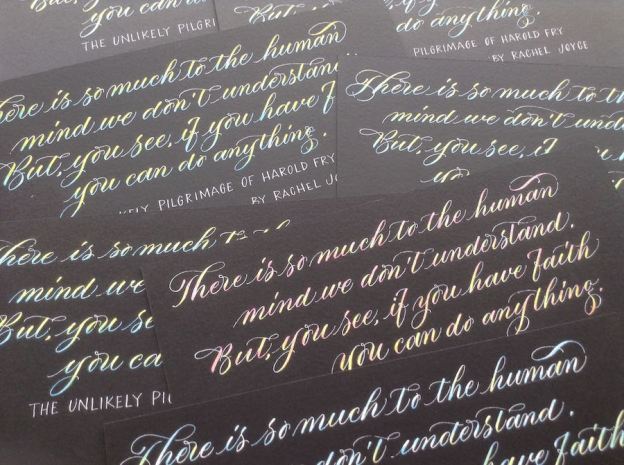 you can
THE UNLIKELY PILGRI
But,
do anything.
PILGRIMAGE OF HAROLD FRY
BY RACHEL JOYCE
There is so much to the human
mind we don't understand.
But, you see, if you have f
you can do anything.
PILGRIMAGE OF HAROLD FRY
BY RACHEL JO
There is so much to
mind we don't und
But, you see, if
There is so much
mind we
But, you se
you ca
THE UNLIKELY PIL
There is so much to the human
mind we don't understand.
But, you see, if you have faith
you can do anything.
There is so much to the human
don't understand.
you have faith